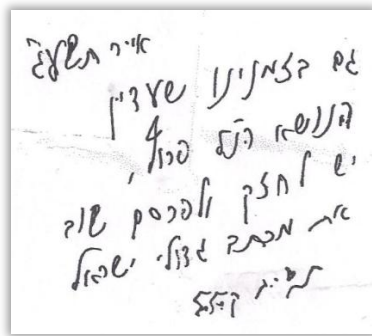 אייר תשע״ג
גם בזמנינו שעדיין
הנושא הנ״ל פרוץ,
יש לחזק ולפרסם שוב
את מכתב גדולי ישראל